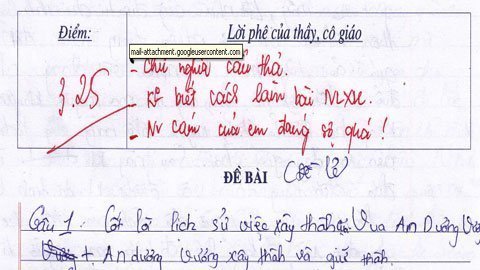 Điểm: Lời phê của thầy, cô giáo
mail-attachment.googleusercontent.com
3,25
- Chữ nghĩa cẩu thả.
- K° biết cách làm bài NLXH.
- N cảm của em đáng sợ quá!
ĐỀ BÀI
Câu 1: Cốt lõi lịch sử việc xây thành Vua An Dương Vương
+ An dương vương xây thành và giữ thành